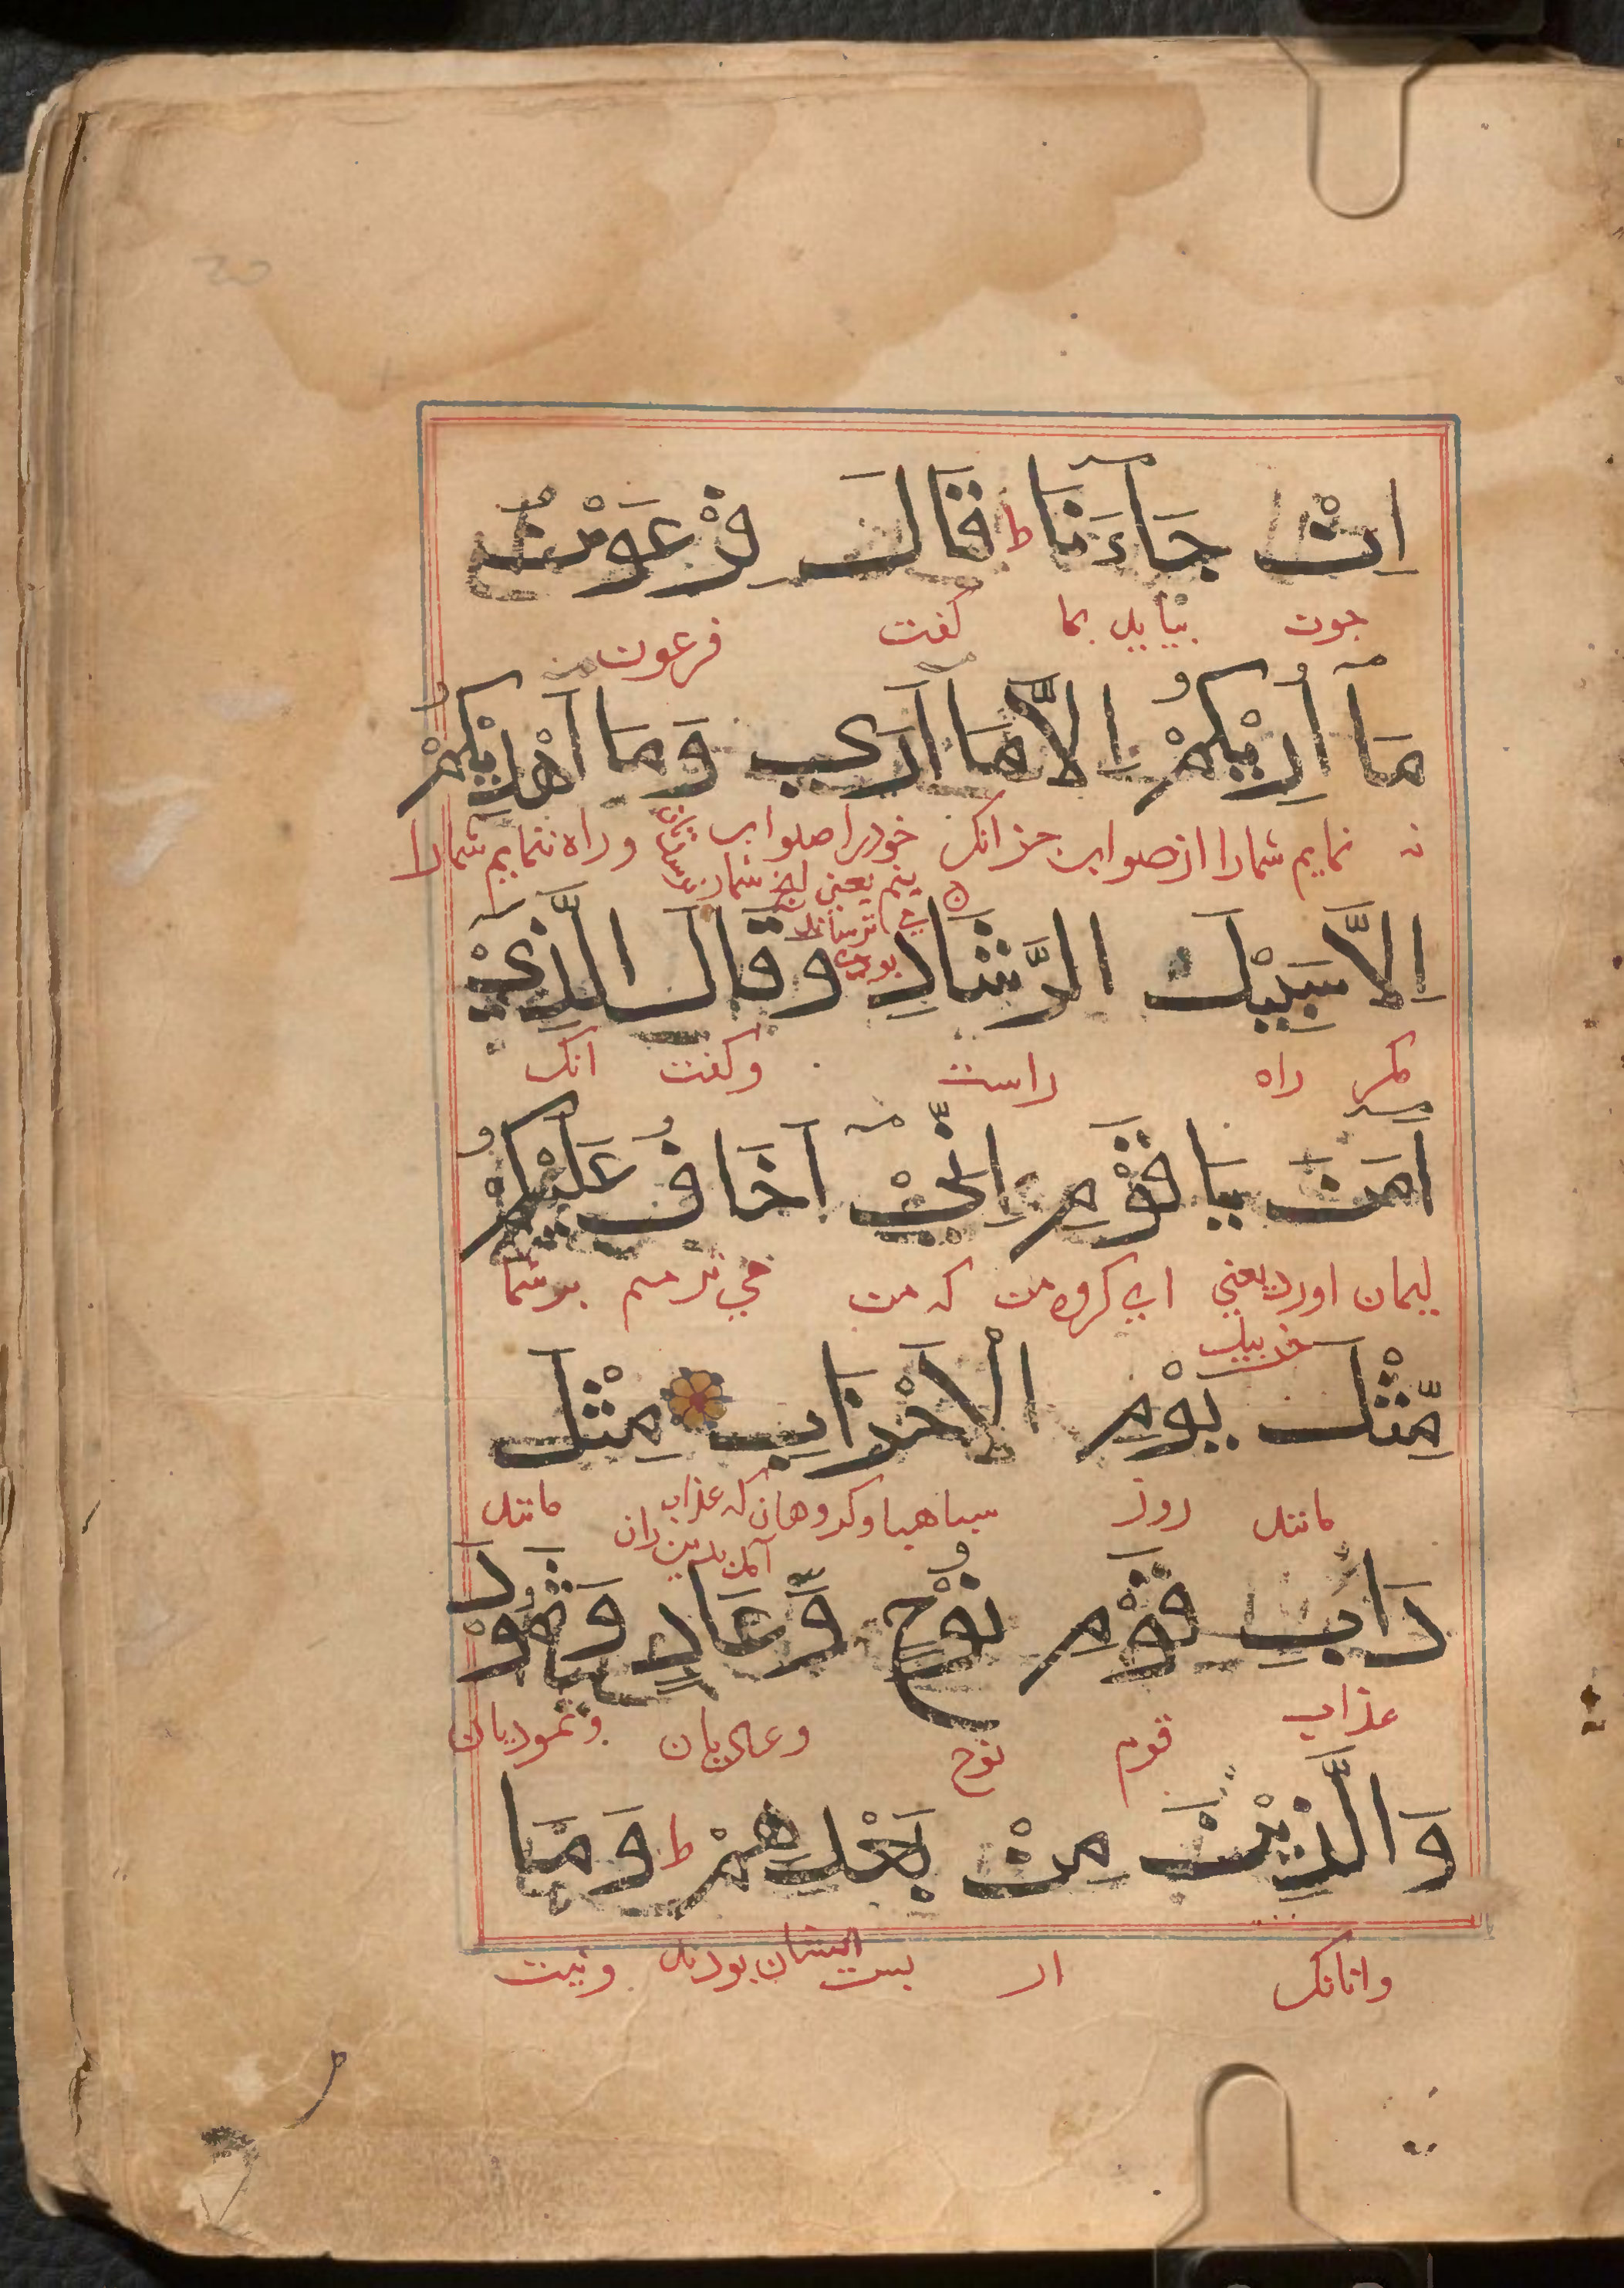 اِنْ جَاۤءَنَا ط قَالَ فِرْعَوْنُ
جون بیاید بما کفت فرعون
مَاۤ اُرِيْكُمْ اِلَّا مَاۤ اَرٰي وَمَاۤ اَهْدِيْكُمْ
نه نمایم شمارا از صواب جز انک خودرا صواب وراه ننمایم شمارا
بینم یعنی
بوده
اِلَّا سَبِيْلَ الرَّشَادِ وَقَالَ الَّذِيْۤ
مکر راه راست وکفت انک
اٰمَنَ يَا قَوْمِ اِنِّيْۤ اَخَافُ عَلَيْكُمْ
ایمان اورد یعنی ای کروه من که من می ترسم بر شما
خربیل
مِّثْلَ يَوْمِ الْاَحْزَابِ مِثْلَ
مانند روز سباهها وکروهان که عذاب مانند
دَاْبِ قَوْمِ نُوْحٍ وَّعَادٍ وَّثَمُوْدَ
عذاب قوم نوح وعادیان وثمودیان
وَالَّذِيْنَ مِنْ بَعْدِهِمْ ط وَمَا
وانانک از بس ایشان بودند ونیست